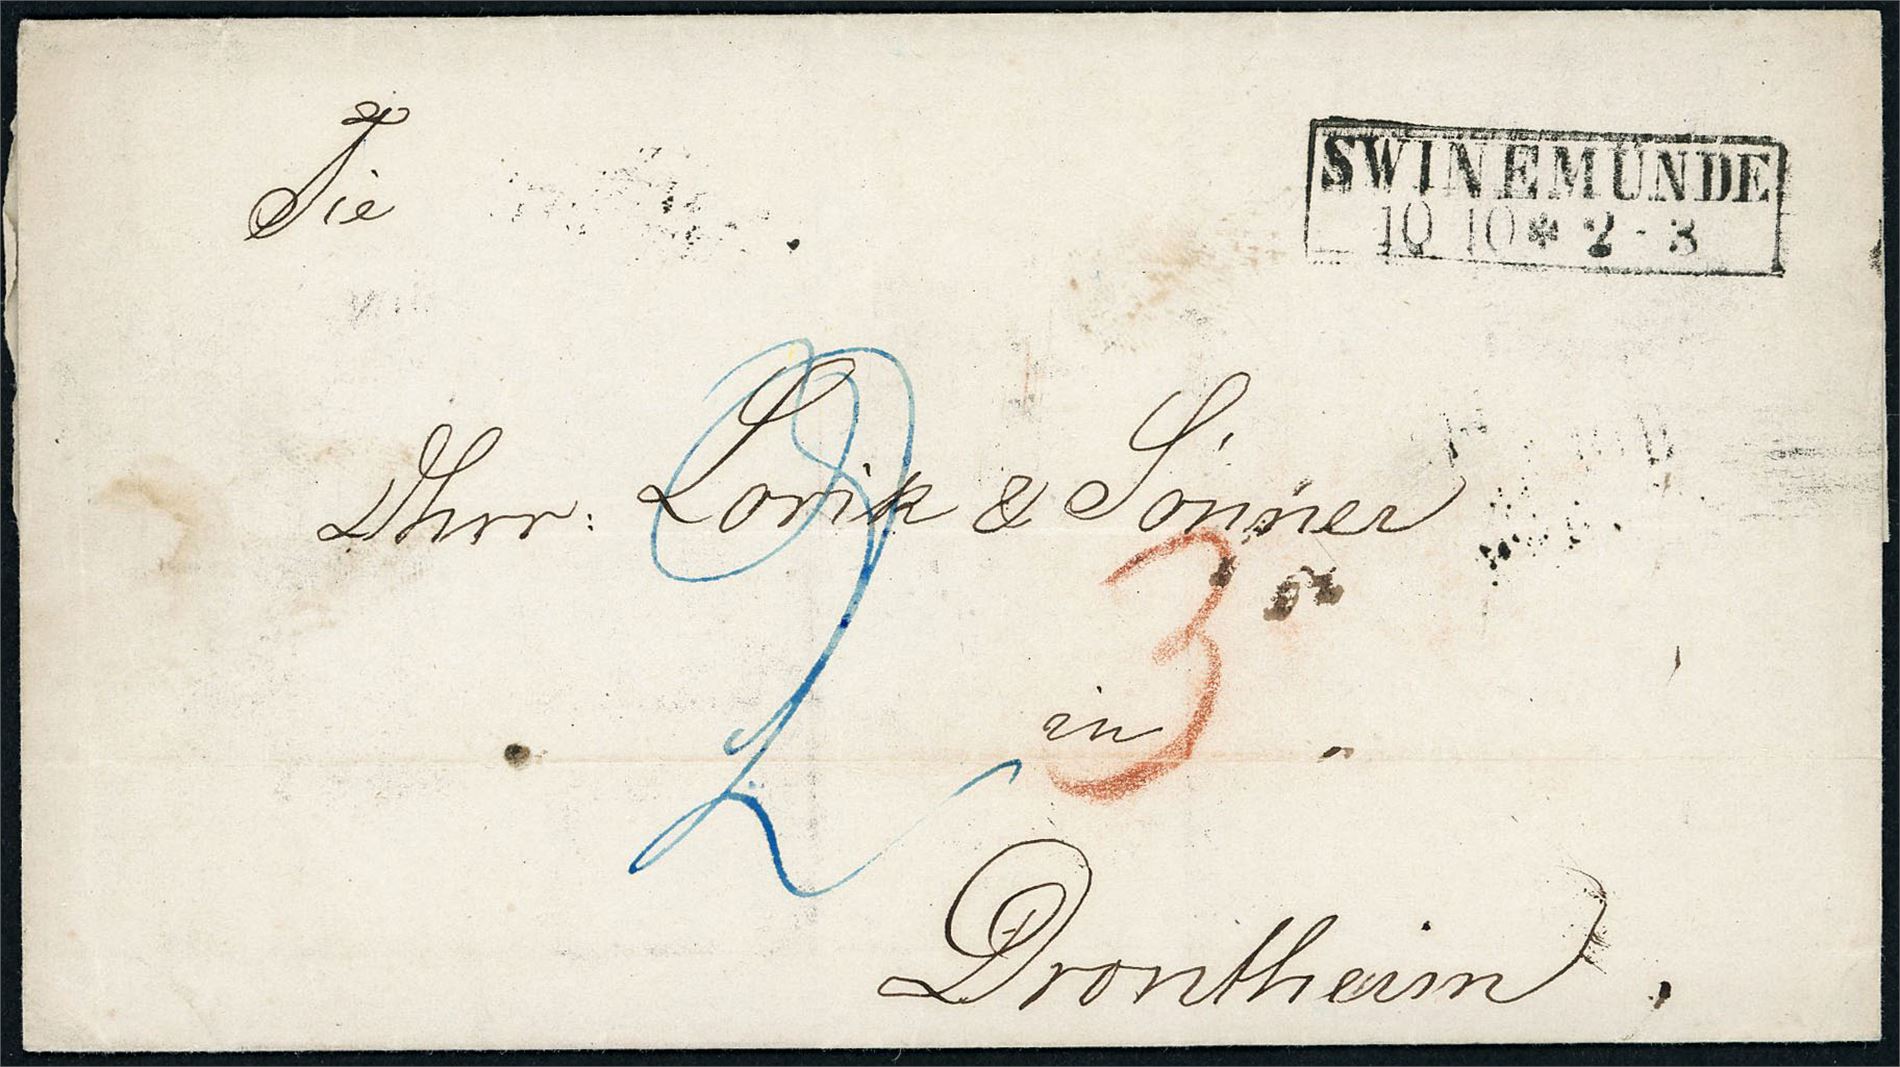 Tie
SWINEMÜNDE
10 10 * 2 - 3
Hrr: Lorik & Sönner
2 3
in
Drontheim.